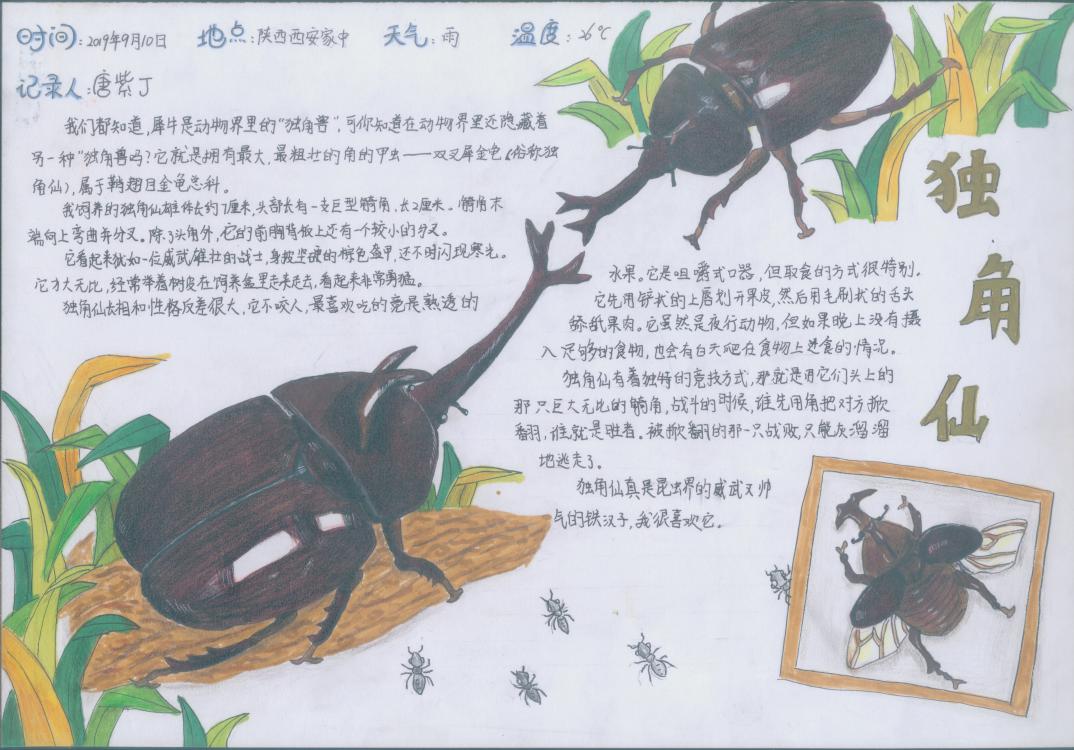 时间:2019年9月10日 地点:陕西西安家中 天气:雨 温度:26℃
记录人:唐紫丁
我们都知道,犀牛是动物界里的“独角兽”,可你知道在动物界里还隐藏着
另一种“独角兽吗?它就是拥有最大、最粗壮的角的甲虫——双叉犀金龟(俗称独
角仙),属于鞘翅目金龟总科。
我饲养的独角仙雄体长约7厘米,头部长有一支巨型犄角,长2厘米。犄角末
端向上弯曲并分叉。除了头角外,它的前胸背板上还有一个较小的分叉。
它看起来犹如一位威武雄壮的战士,身披坚硬的棕色盔甲,还不时闪现寒光。
它力大无比,经常举着树皮在饲养盒里走来走去,看起来非常勇猛。
独角仙长相和性格反差很大,它不咬人,最喜欢吃的竟是熟透的
水果。它是咀嚼式口器,但取食的方式很特别。
它先用铲状的上唇划开果皮,然后用毛刷状的舌头
舔舐果肉。它虽然是夜行动物,但如果晚上没有摄
入足够的食物,也会有白天爬在食物上进食的情况。
独角仙有着独特的竞技方式,那就是用它们头上的
那只巨大无比的犄角,战斗的时候,谁先用角把对方掀
翻,谁就是胜者。被掀翻的那一只战败,只能灰溜溜
地逃走了。
独角仙真是昆虫界的威武又帅
气的铁汉子,我很喜欢它。
独
角
仙